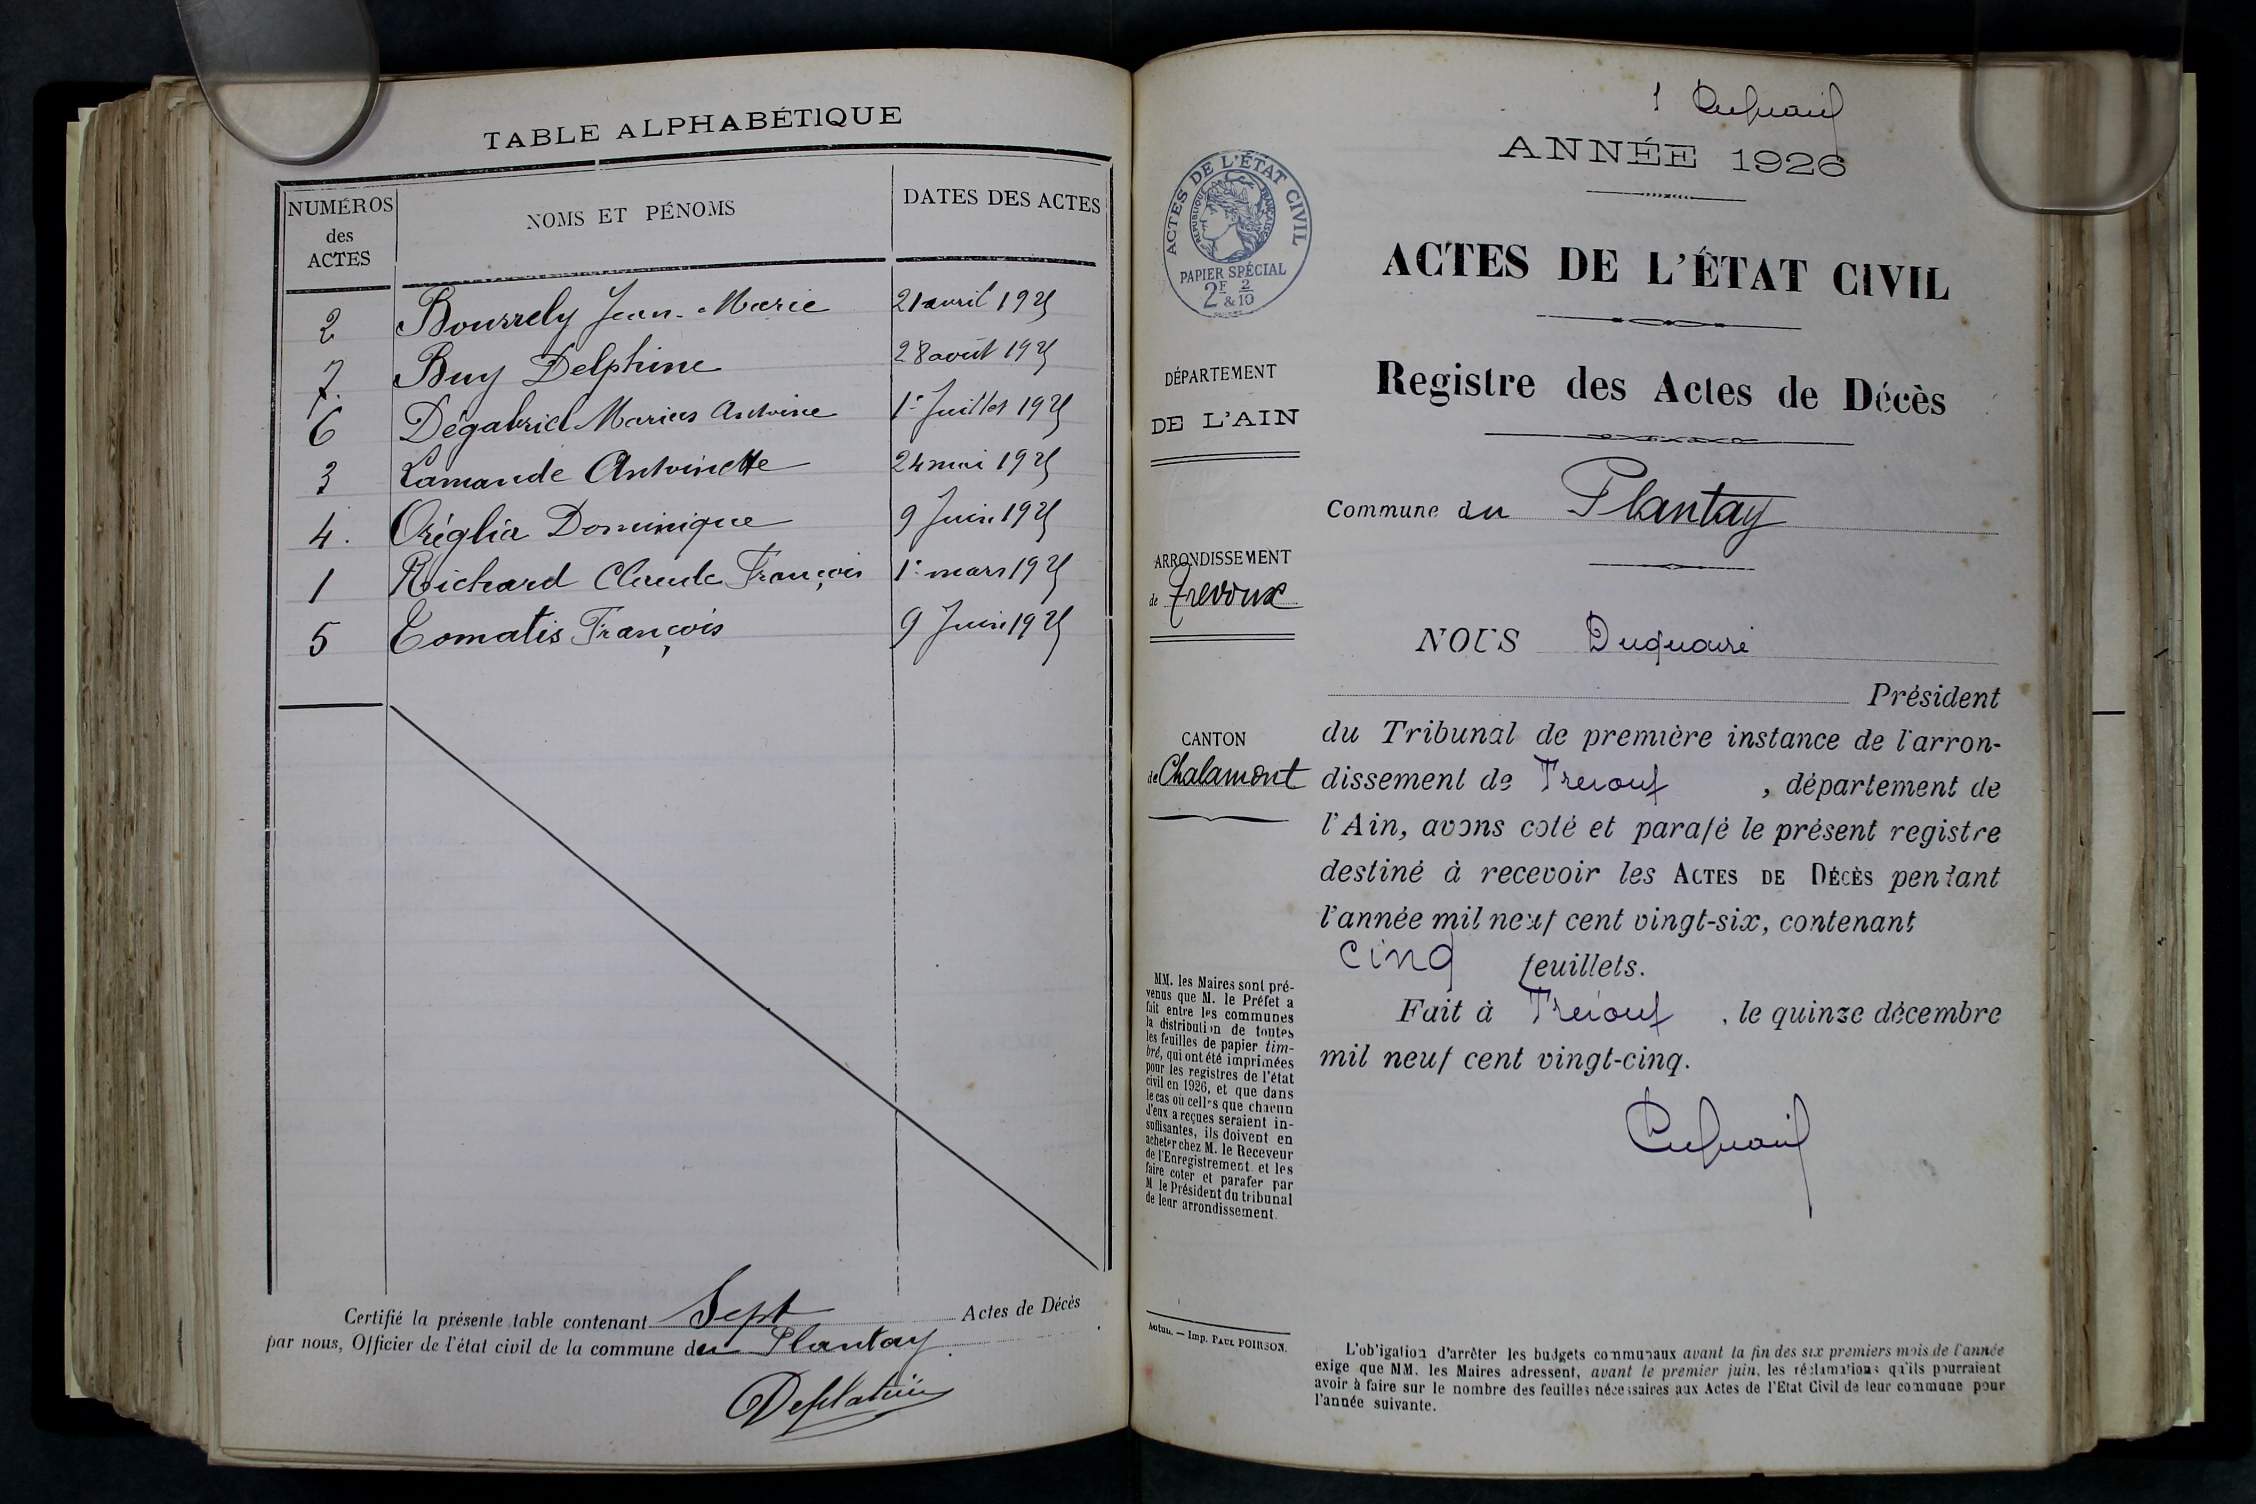 TABLE ALPHABÉTIQUE
NUMÉROS des ACTES NOMS ET PÉNOMS DATES DES ACTES
2 Bourrely Jean-Marie 21 avril 1925
7. Buy Delphine 28 août 1925
6 Dégabriel Marius Antoine 1er Juillet 1925
3 Lamande Antoinette 24 mai 1925
4. Oréglia Dominique 9 Juin 1925
1 Richard Claude François 1er mars 1925
5 Tomatis François 9 Juin 1925
Certifié la présente table contenant Sept Actes de Décès
par nous, Officier de l'état civil de la commune du Plantay.
1
ANNÉE 1926
ACTES DE L'ÉTAT CIVIL
RÉPUBLIQUE FRANÇAISE
PAPIER SPÉCIAL
2F & 2/10
ACTES DE L'ÉTAT CIVIL
Registre des Actes de Décès
DÉPARTEMENT
DE L'AIN
Commune du Plantay
ARRONDISSEMENT
de Trevoux
CANTON
de Chalamont
NOUS Duquaire
Président
du Tribunal de première instance de l'arron-
dissement de Trevoux, département de
l'Ain, avons coté et parafé le présent registre
destiné à recevoir les ACTES DE DÉCÈS pendant
l'année mil neuf cent vingt-six, contenant
cinq feuillets.
Fait à Trevoux, le quinze décembre
mil neuf cent vingt-cinq.
MM. les Maires sont pré-
venus que M. le Préfet a
fait entre les communes
la distribution de toutes
les feuilles de papier tim-
bré, qui ont été imprimées
pour les registres de l'état
civil en 1926, et que dans
le cas où celles que chacun
d'eux a reçues seraient in-
suffisantes, ils doivent en
acheter chez M. le Receveur
de l'Enregistrement et les
faire coter et parafer par
M le Président du tribunal
de leur arrondissement.
Autun. — Imp. PAUL POIRSON.
L'obligation d'arrêter les budgets communaux avant la fin des six premiers mois de l'année
exige que MM. les Maires adressent, avant le premier juin, les réclamations qu'ils pourraient
avoir à faire sur le nombre des feuilles nécessaires aux Actes de l'Etat Civil de leur commune pour
l'année suivante.